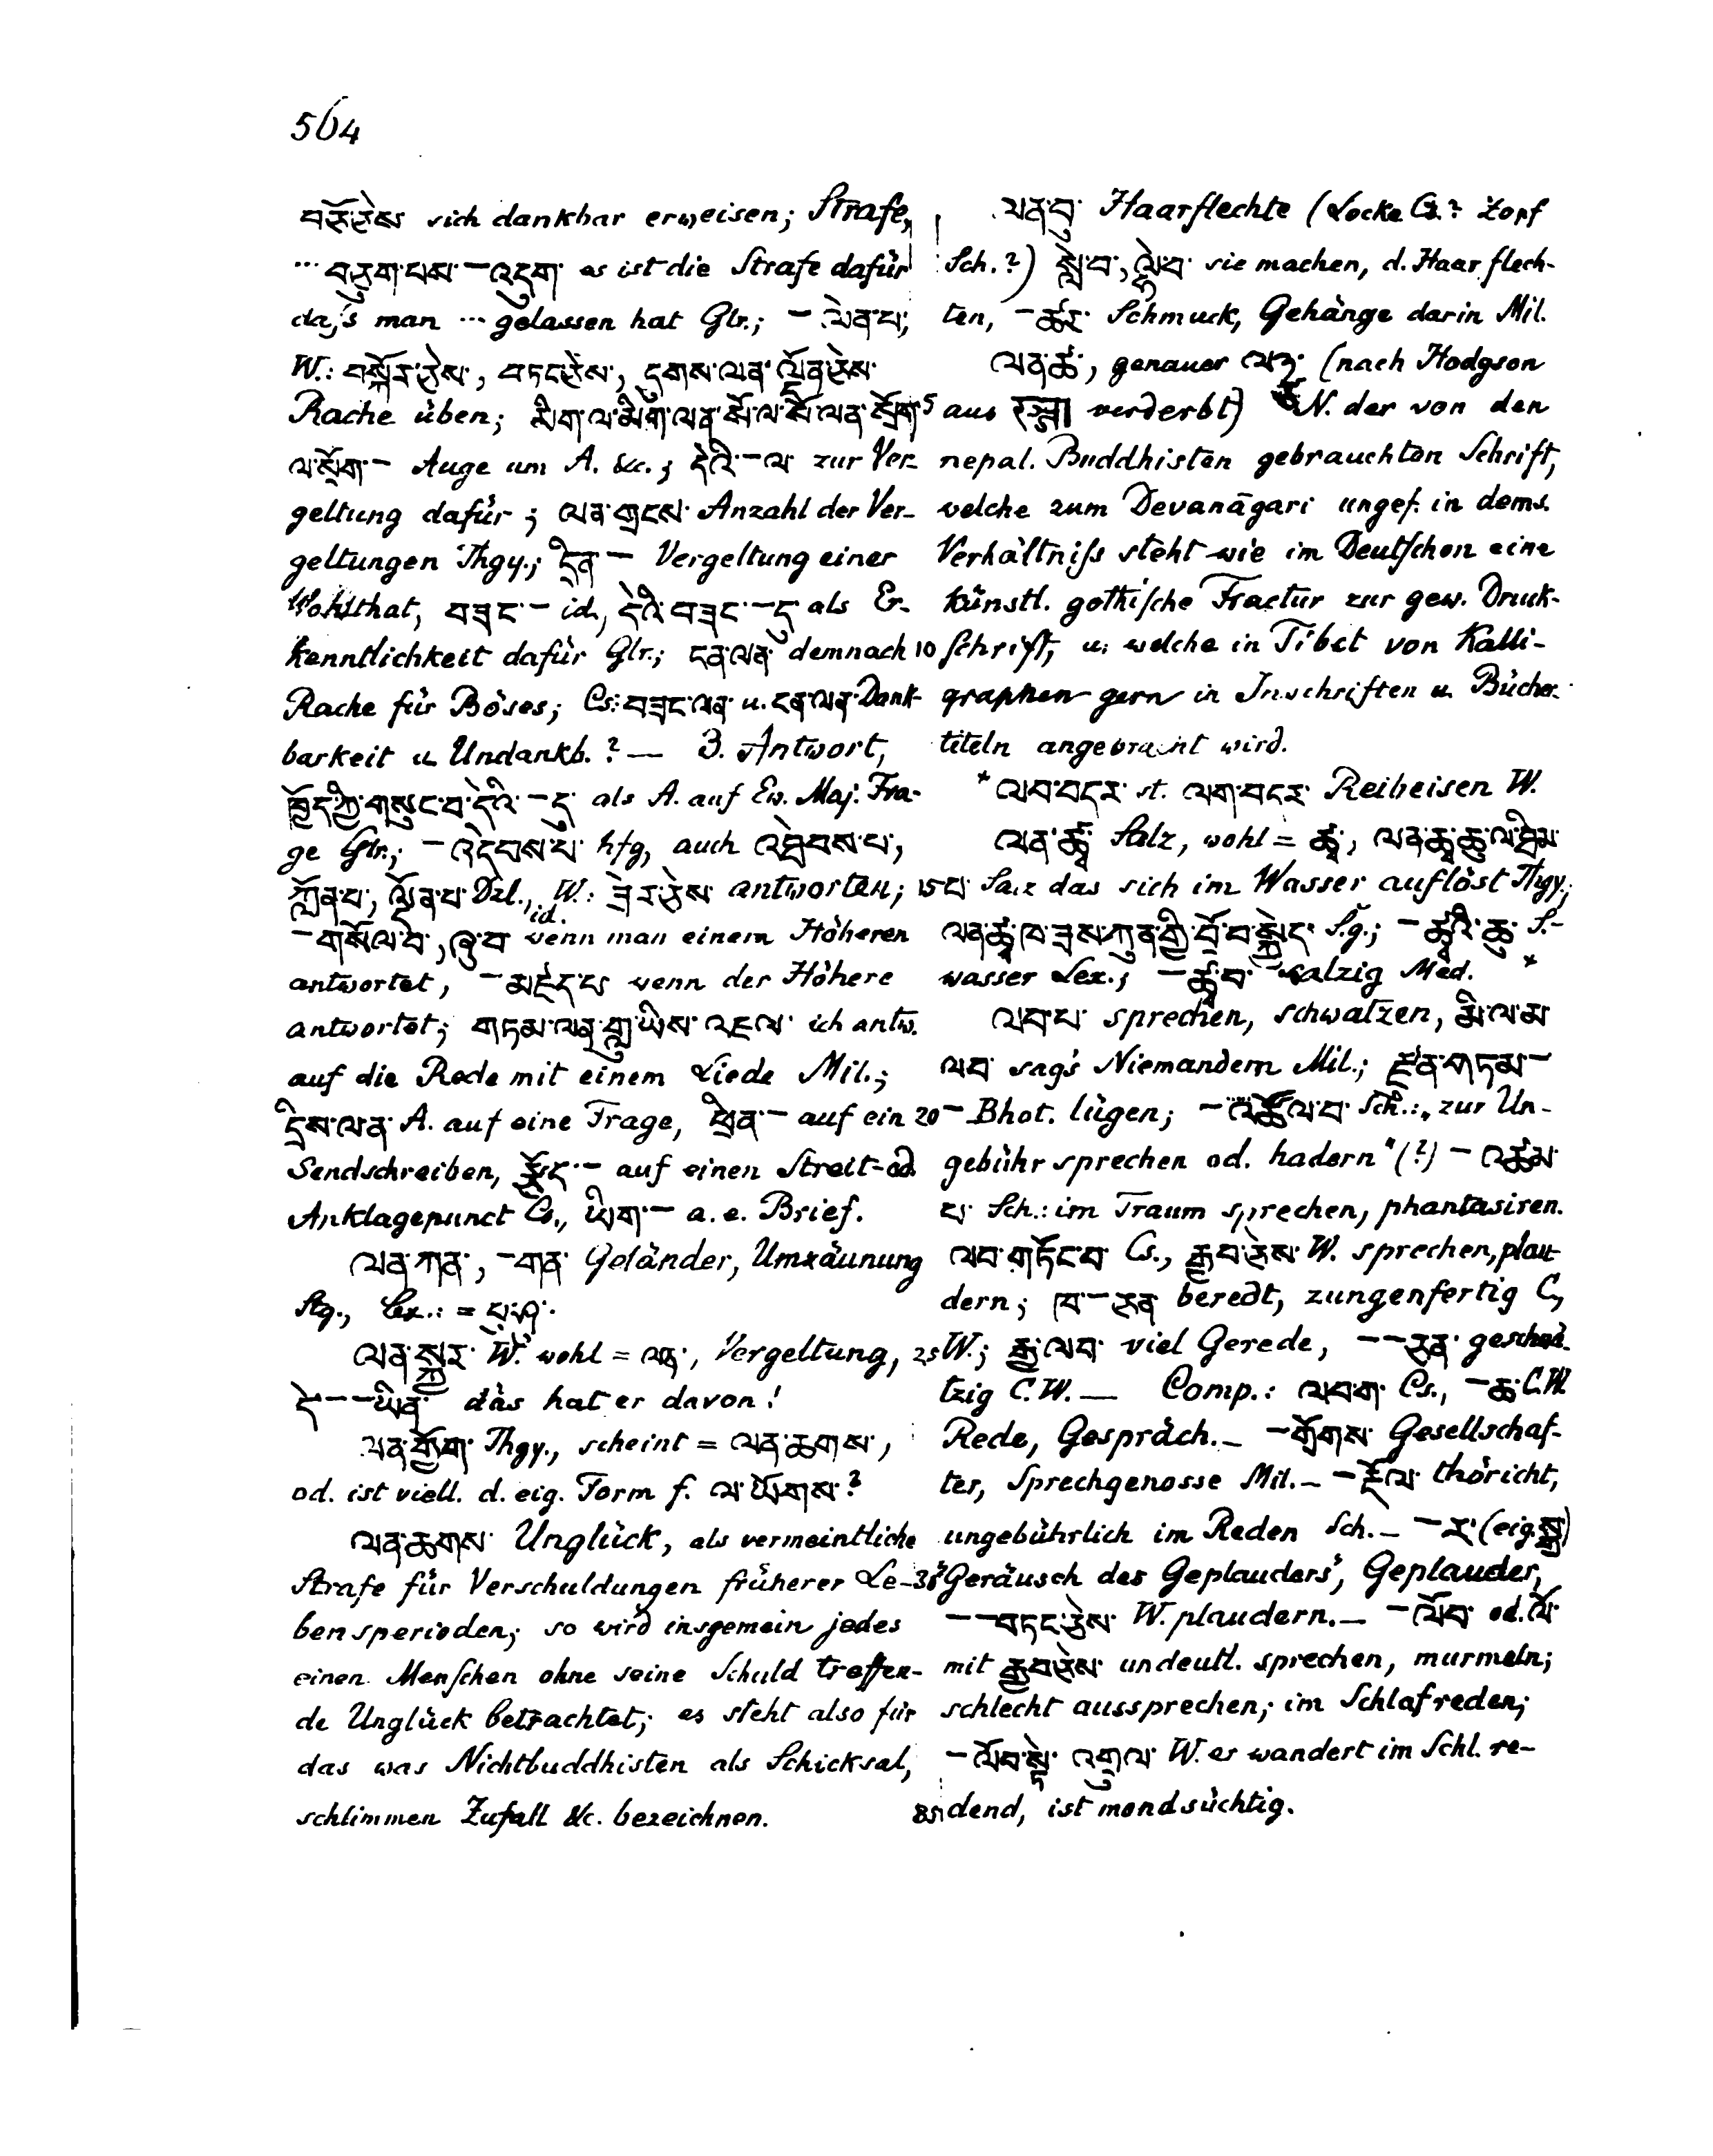 564
བརྗེ་ཅེས sich dankbar erweisen; Strafe,
... བཅུག་པས་ — འདུག་ es ist die Strafe dafür
daſs man ... gelassen hat Glr.; — ལེན་པ;
W.: བསྐོར་ཅེས་, བཏང་ཅེས་, དུགས་ལན་ ལོན་ཅེས་
Rache üben; མིག་ལ་མིག་ལན་ སོ་ལ་སོ་ལན་ སྲོག་
ལ་སྲོག་ — Auge um A. &c.; དེའི་ — ལ་ zur Ver-
geltung dafür; ལན་གྲངས་ Anzahl der Ver-
geltungen Thgy.; དྲིན་ — Vergeltung einer
Wohlthat, བཟང་ — id, དེའི་བཟང་ — དུ als Er-
kenntlichkeit dafür Glr.; ངན་ལན་ demnach
Rache für Böses; Cs: བཟང་ལན་ u. ངན་ལན་ Dank-
barkeit u. Undankb.? — 3. Antwort,
ཁྱོད་ཀྱི་གསུང་བ་དེའི་ — དུ als A. auf Ew. Maj. Fra-
ge Glr.; — འདེབས་པ་ hfg, auch འཕེབས་པ་,
ཀློན་པ་, ལྡོན་པ་ Dzl., W.: ཟེར་ཅེས་ antworten;
— གསོལ་བ་, ཞུ་བ id. wenn man einem Höheren
antwortet, — མཛད་པ wenn der Höhere
antwortet; གཏམ་ལན་གླུ་ཡིས་འཇལ་ ich antw.
auf die Rede mit einem Liede Mil.;
དྲིས་ལན་ A. auf eine Frage, ཕྲིན་ — auf ein
Sendschreiben, རྩོད་ — auf einen Streit- od.
Anklagepunct Cs., ཡིག་ — a. e. Brief.
ལན་ཀན་, — གན་ Geländer, Umzäunung
Stg., Lex.: =
ལན་སྐྱར་ W. wohl = ལན་, Vergeltung,
དེ་ — — ཡིན་ das hat er davon!
ལན་གྱོག་ Thgy., scheint = ལན་ཆགས་,
od. ist viell. d. eig. Form f. ལ་ཡོགས་?
ལན་ཆགས་ Unglück, als vermeintliche
Strafe für Verschuldungen früherer Le-
bensperioden; so wird insgemein jedes
einen Menſchen ohne seine Schuld treffen-
de Unglück betrachtet; es steht also für
das was Nichtbuddhisten als Schicksal,
schlimmen Zufall &c. bezeichnen.
ལན་བུ་ Haarflechte (Locke Cs.? Zopf
Sch.?) སླེ་བ་, ལྷེ་བ་ sie machen, d. Haarflech-
ten, — ཚར་ Schmuck, Gehänge darin Mil.
ལན་ཚ་, genauer (nach Hodgson
5 aus verderbt) N. der von den
nepal. Buddhisten gebrauchten Schrift,
welche zum Devanāgari ungef. in dems.
Verhältniſs steht wie im Deutſchen eine
künstl. gothiſche Fractur zur gew. Druk-
10 ſchrift, u. welche in Tibet von Kalli-
graphen gern in Inschriften u. Bücher-
titeln angebracht wird.
* ལབ་བདར་ st. ལག་བདར་ Reibeisen W.
ལན་ཚྭ་ Salz, wohl = ཚྭ་, ལན་ཚྭ་ཆུ་ལ་ཐིམ་
15 པ་ Salz das sich im Wasser auflöst Thgy.;
ལན་ཚྭ་ཁ་ཟས་ཀུན་གྱི་བྲོ་བ་སྐྱེད་ S.g.; — ཚྭའི་ཆུ་ S.-
wasser Lex.; — ཚྭ་བ་ salzig Med. *
ལབ་པ་ sprechen, schwatzen, མི་ལ་མ་
ལབ་ sag's Niemandem Mil.; རྫུན་གཏམ་ —
20 — Bhot. lügen; — འཚོལ་བ་ Sch.: „zur Un-
gebühr sprechen od. hadern" (?) — འཚམ་
པ་ Sch.: im Traum sprechen, phantasiren.
ལབ་གཏོང་བ་ Cs., རྒྱབ་ཅེས་ W. sprechen, plau-
dern; ཁ་ — ཅན་ beredt, zungenfertig C,
25 W.; རྒྱ་ལབ་ viel Gerede, — — ཅན་ geschwä-
tzig C.W. — Comp.: ལབ་ག་ Cs., — ཆ་ C.W.
Rede, Gespräch. — — གྲོགས་ Gesellschaf-
ter, Sprechgenosse Mil. — — རྡོལ་ thöricht,
ungebührlich im Reden Sch. — — ར་ (eig. སྒྲ)
30 "Geräusch des Geplauders", Geplauder,
— — བཏང་ཅེས་ W. plaudern. — — ལོབ་ od. ལོ་
mit རྒྱབ་ཅེས་ undeutl. sprechen, murmeln;
schlecht aussprechen; im Schlaf reden;
— ལོབ་སྟེ་ འགྲུལ་ W. er wandert im Schl. re-
35 dend, ist mondsüchtig.